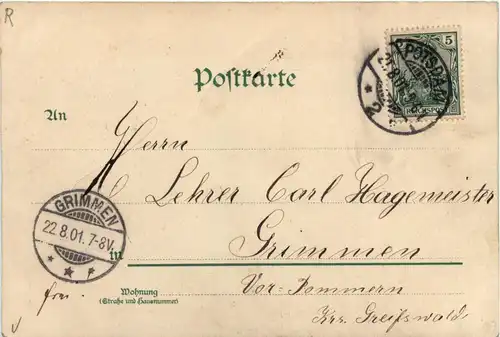 R
5
POTSDAM
Postkarte
An
Herrn
Lehrer Carl Hagemeister
GRIMMEN
22.8.01. 7-8V.
in Grimmen
Wohnung
(Straße und Hausnummer)
Vor-Pommern
frei.
Krs. Greifswald